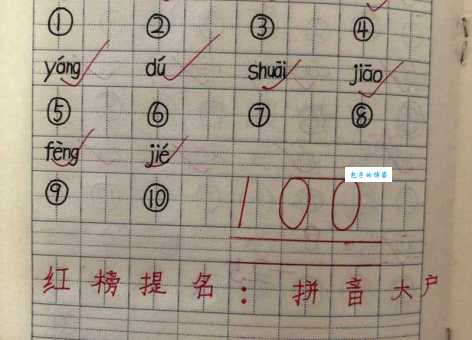 ① ② ③ ④
yáng dú shuāi jiāo
⑤ ⑥ ⑦ ⑧
fèng jié
⑨ ⑩ 100
红榜提名：拼音大户